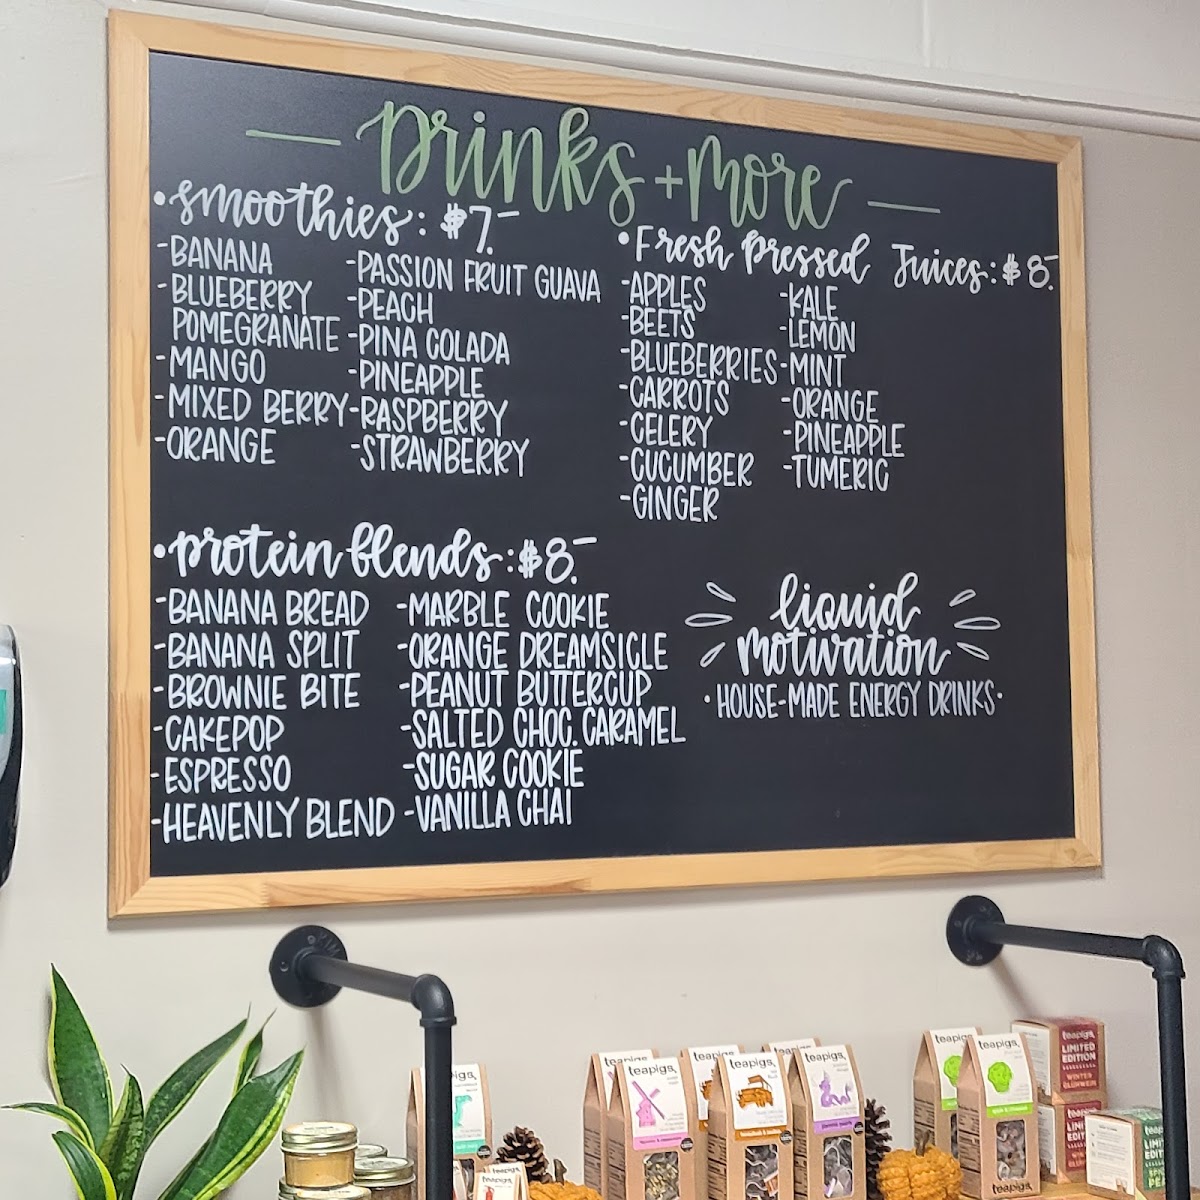 Drinks + More
• smoothies: $7.-
-BANANA
-BLUEBERRY
POMEGRANATE
-MANGO
-MIXED BERRY
-ORANGE
-PASSION FRUIT GUAVA
-PEACH
-PINA COLADA
-PINEAPPLE
-RASPBERRY
-STRAWBERRY
• Fresh Pressed Juices: $8.-
-APPLES
-BEETS
-BLUEBERRIES
-CARROTS
-CELERY
-CUCUMBER
-GINGER
-KALE
-LEMON
-MINT
-ORANGE
-PINEAPPLE
-TUMERIC
• protein blends: $8.-
-BANANA BREAD
-BANANA SPLIT
-BROWNIE BITE
-CAKEPOP
-ESPRESSO
-HEAVENLY BLEND
-MARBLE COOKIE
-ORANGE DREAMSICLE
-PEANUT BUTTERCUP
-SALTED CHOC. CARAMEL
-SUGAR COOKIE
-VANILLA CHAI
liquid
motivation
• HOUSE-MADE ENERGY DRINKS •
teapigs.
teapigs.
teapigs.
teapigs.
teapigs.
teapigs.
teapigs.
teapigs.
LIMITED
EDITION
WINTER
GLUHWEIN
teapigs
teapigs
teapigs